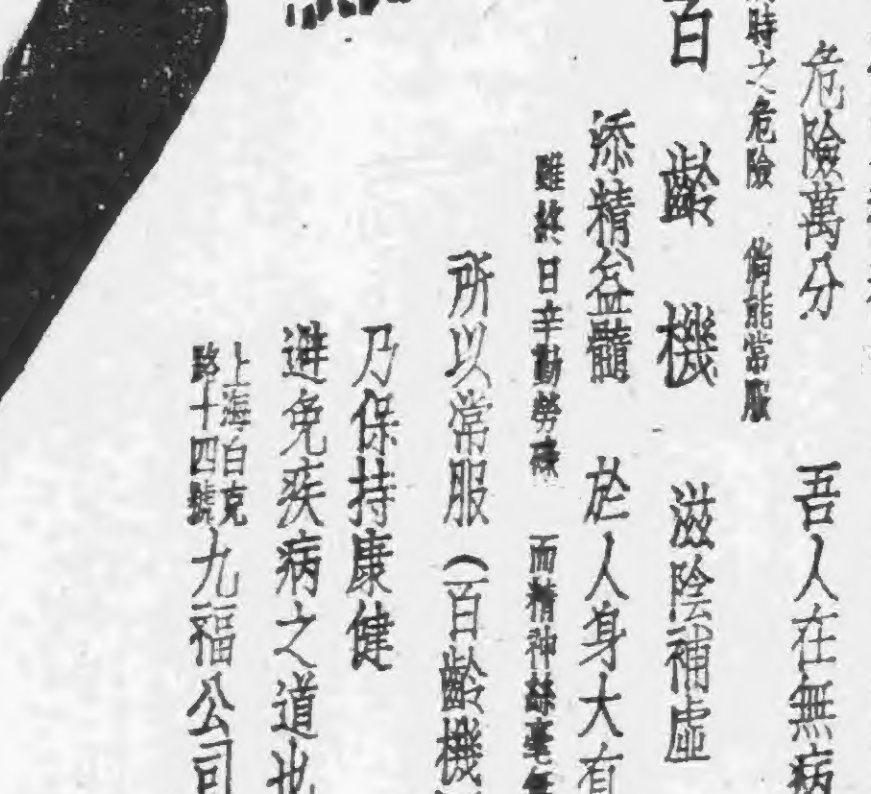 危險萬分　吾人在無病
時之危險　倘能常服
百齡機　滋陰補虛
添精益髓　於人身大有
雖終日辛勤勞碌　而精神絲毫無
所以常服（百齡機
乃保持康健
避免疾病之道也
上海白克
路十四號
九福公司